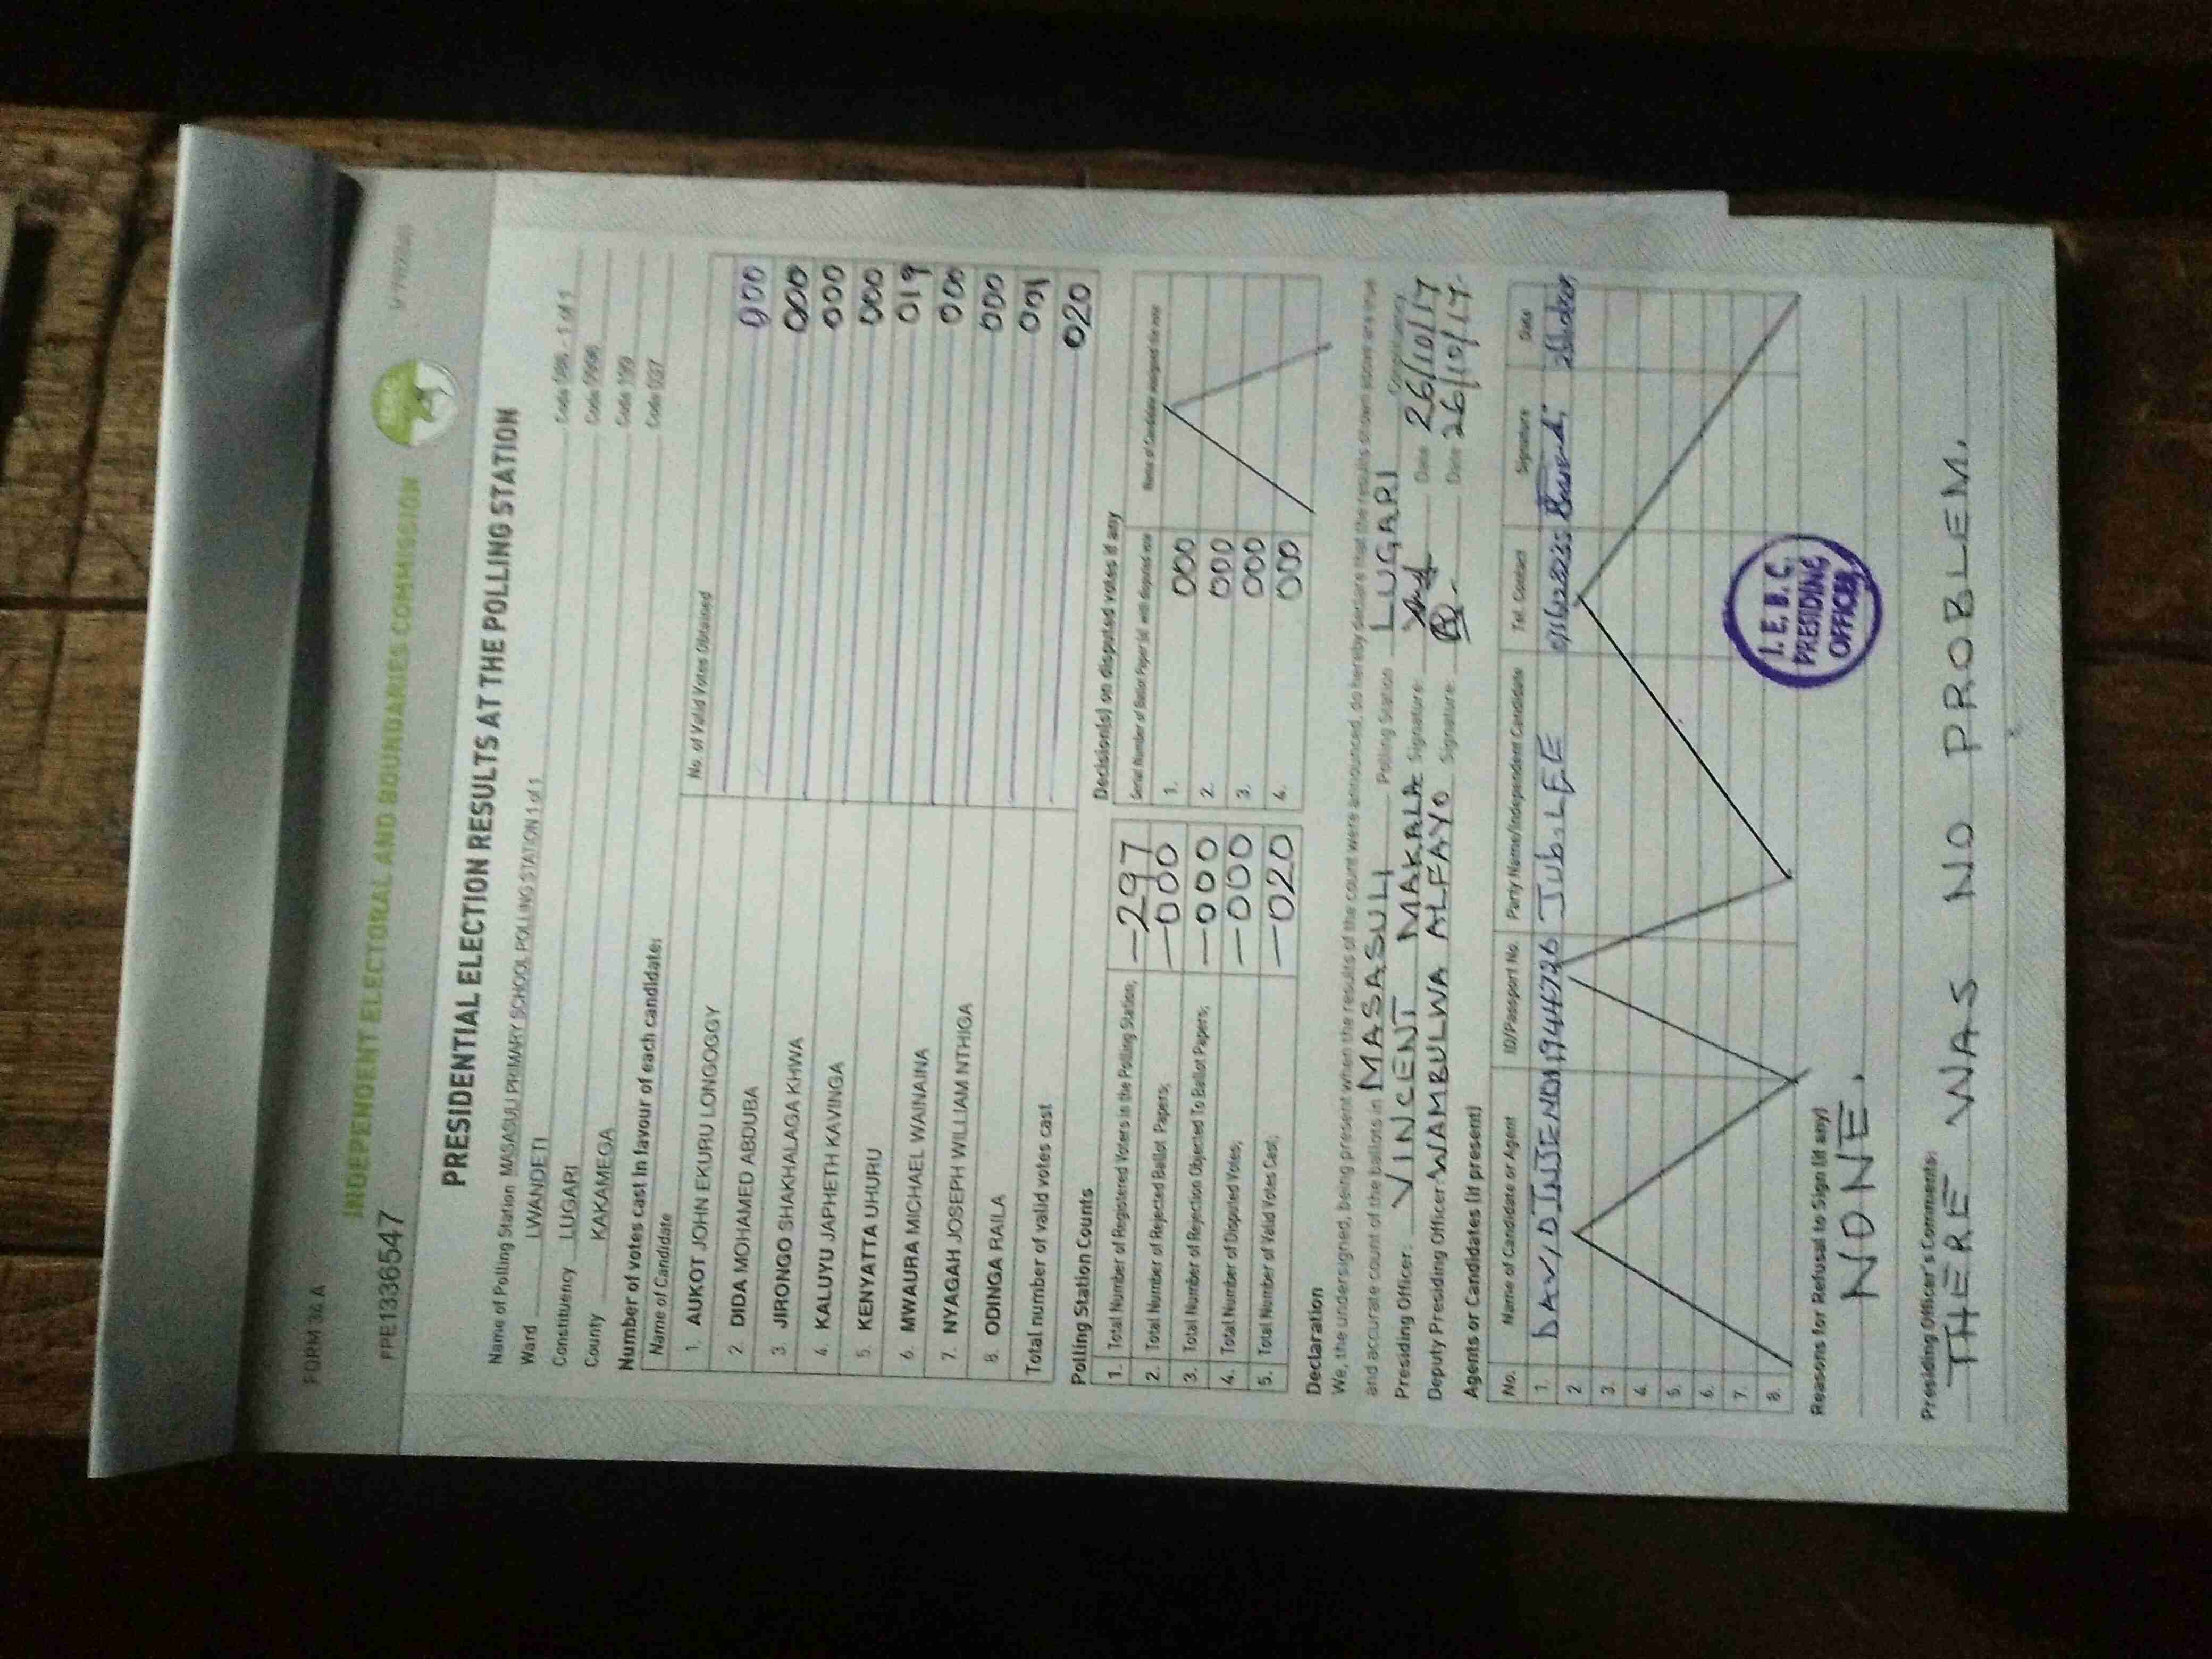 FORM 34 A
INDEPENDENT ELECTORAL AND BOUNDARIES COMMISSION
PPE1336547
PRESIDENTIAL ELECTION RESULTS AT THE POLLING STATION
Name of Polling Station MASASULI PRIMARY SCHOOL POLLING STATION 1 of 1
Ward LWANDETI
Constituency LUGARI Code 199
County KAKAMEGA Code 037
Number of votes cast in favour of each candidate:
Name of Candidate No. of Valid Votes Obtained
1. AUKOT JOHN EKURU LONGOGGY 000
2. DIDA MOHAMED ABDUBA 000
3. JIRONGO SHAKHALAGA KHWA 000
4. KALUYU JAPHETH KAVINGA 000
5. KENYATTA UHURU 019
6. MWAURA MICHAEL WAINAINA 000
7. NYAGAH JOSEPH WILLIAM NTHIGA 000
8. ODINGA RAILA 001
Total number of valid votes cast 020
Polling Station Counts
1. Total Number of Registered Voters in the Polling Station; 297
2. Total Number of Rejected Ballot Papers; 000
3. Total Number of Rejection Objected To Ballot Papers; 000
4. Total Number of Disputed Votes; 000
5. Total Number of Valid Votes Cast; 020
Decision(s) on disputed votes if any
Serial Number of Ballot Paper (s) with disputed vote Name of Candidate assigned the vote
1. 000
2. 000
3. 000
4. 000
Declaration
We, the undersigned, being present when the results of the count were announced, do hereby declare that the results shown above are true
and accurate count of the ballots in MASASULI Polling Station LUGARI Constituency
Presiding Officer: VINCENT MAKALA Signature: Date 26/10/17
Deputy Presiding Officer: WAMBULWA ALFAYO Signature: Date 26/10/17
Agents or Candidates (if present)
No. Name of Candidate or Agent ID/Passport No. Party Name/Independent Candidate Tel. Contact Signature Date
1. DAVID INJENDI 19444726 JubiLEE
2.
3.
4.
5.
6.
7.
8.
I.E.B.C.
PRESIDING
OFFICER
Reasons for Refusal to Sign (if any)
NONE.
Presiding Officer's Comments:
THERE WAS NO PROBLEM.